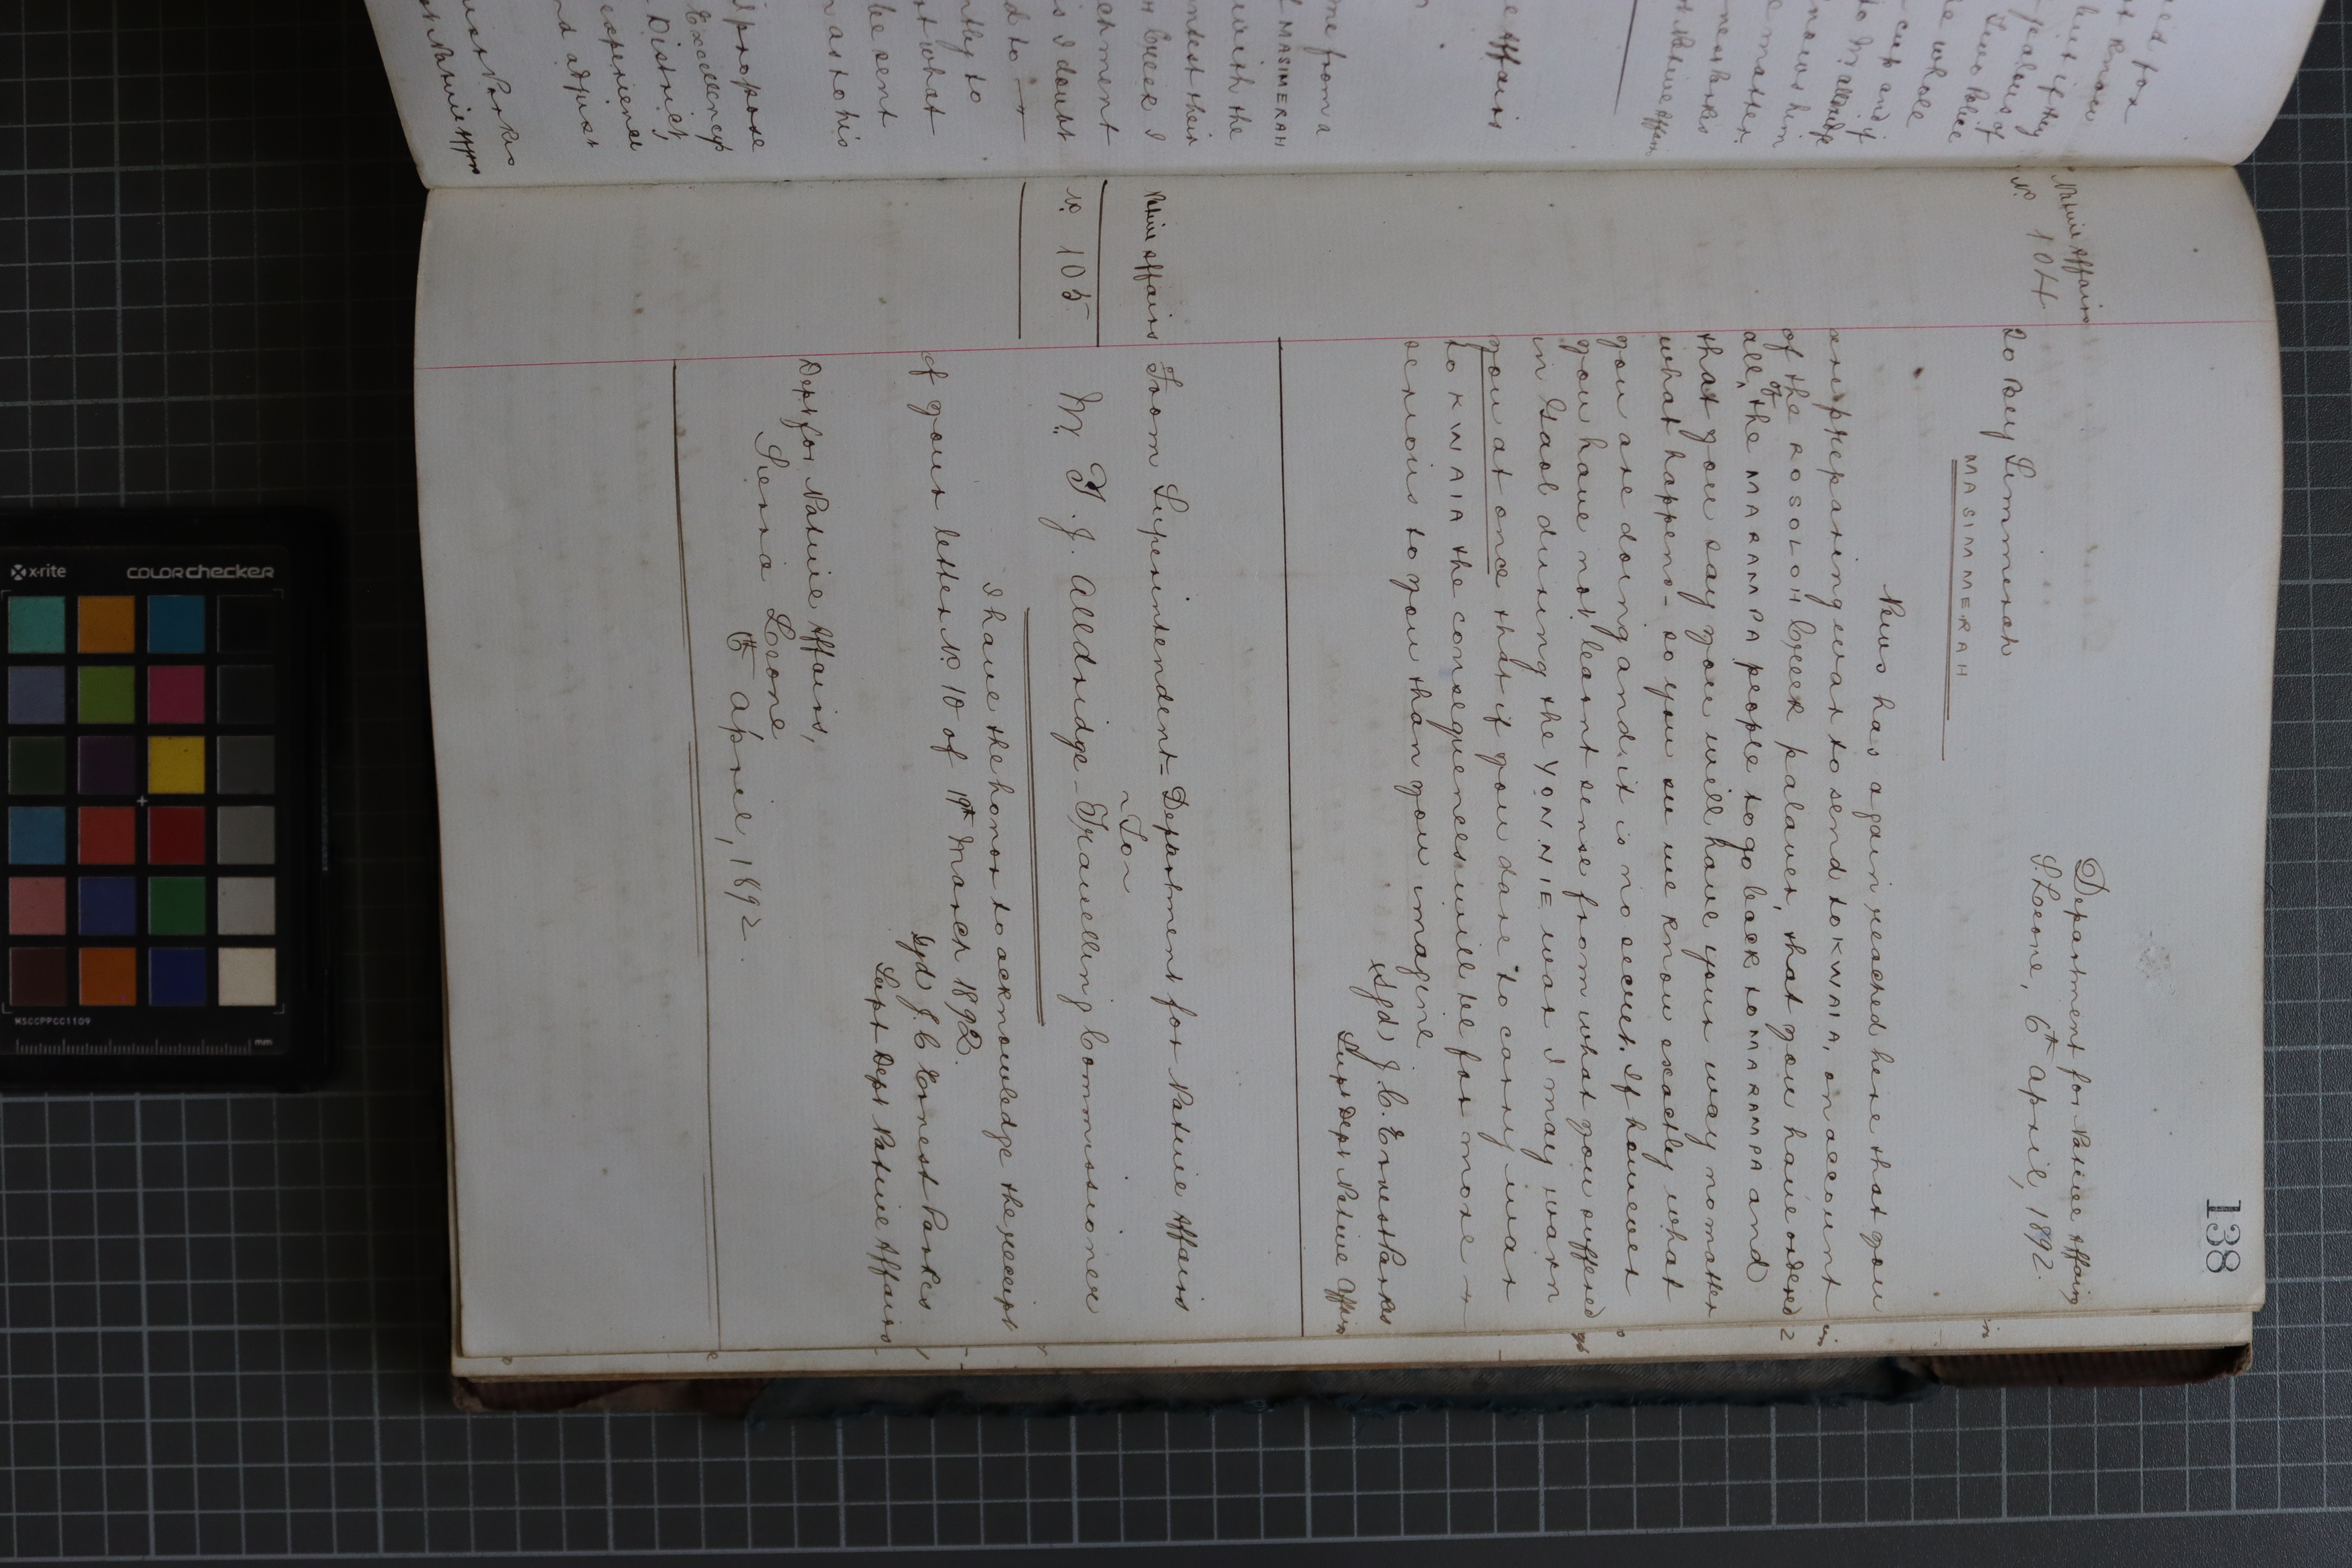 138
Department for Native Affairs
S. Leone, 6th April, 1892.
Native Affairs
No 104
To Bey Simmerah
MASIMMERAH
News has again reached here that you
are preparing war to send to KWAIA, on account
of the ROSOLOH Creek palaver, that you have ordered
all of the MARAMPA people to go back to MARAMPA and
that you say you will have your way no matter
what happens - so you see we know exactly what
you are doing and it is no secret. If however
you have not learnt sense from what you suffered
in Gaol during the YONNIE war I may warn
you at once that if you dare to carry war
to KWAIA the consequences will be far more
serious to you than you imagine
(Sgd) J. C. Ernest Parkes
Supt Dept Native Affairs
Native Affairs
No 105
From Superintendent - Department for Native Affairs
To
Mr. T. J. Alldridge - Travelling Commissioner
I have the honor to acknowledge the receipt
of your letter No 10 of 19th March 1892.
Sgd J. C Ernest Parkes
Supt Dept Native Affairs
Dept for Native Affairs,
Sierra Leone
6th April, 1892.
me from a
MASIMERAH
with the
ntest their
n Creek I
chment
is I doubt
d to
ntly to
t what
be sent
n as to his
I propose
Excellency
District,
experience
nd adjust
est Parkes
pt Native Affrs
e Affairs
ied for
t know
jealous of
Two Police
he whole
cup and if
to Mr Alldridge
nows him
e matter
nest Parkes
t Native Affairs
x-rite
colorchecker
MSCCPPCC1109
mm